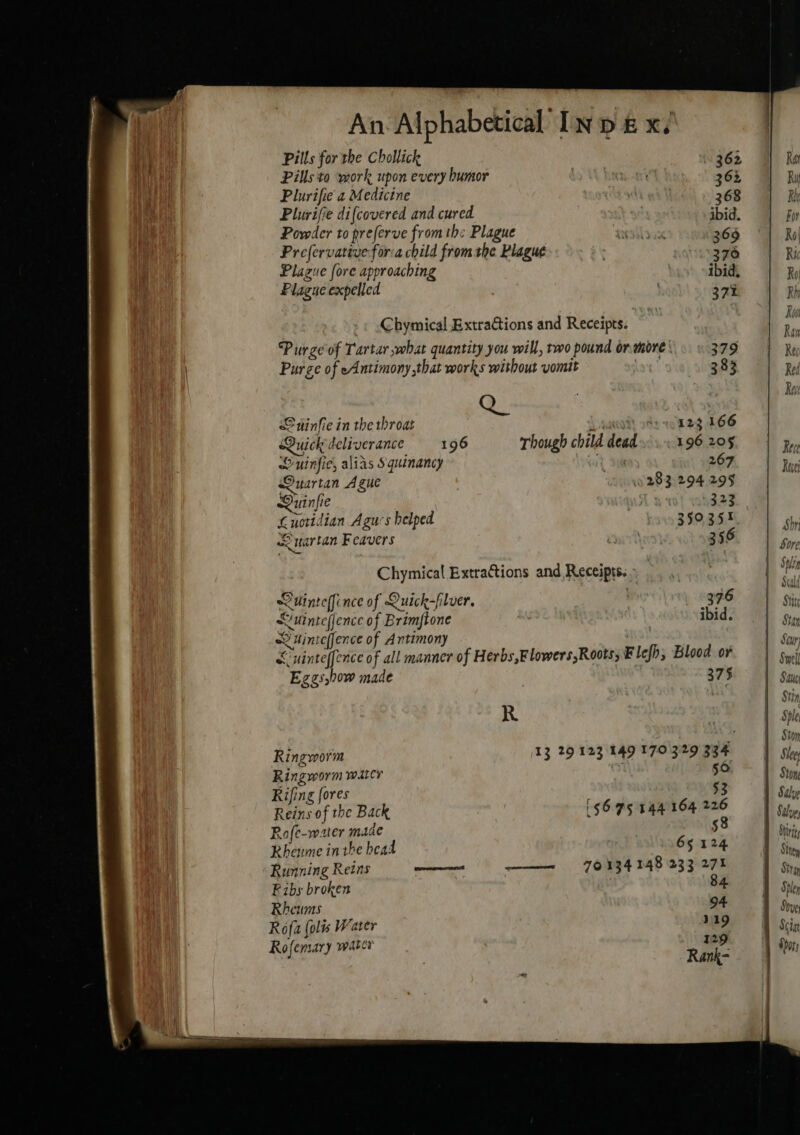 An Alphabetical INDEX.
Pills for the Chollick 362
Pills to work upon every humor 362
Plurisie a Medicine 368
Plurisie discovered and cured ibid.
Powder to preserve from the Plague 369
Preservative for a child from the Plague 370
Plague sore approaching ibid.
Plague expelled 371
Chymical Extractions and Receipts.
Purge of Tartar, what quantity you will, two pound or more 379
Purge of Antimony, that works without vomit 383
Q
Quinsie in the throat 123 166
Quick deliverance 196 Though child dead 196 205
Quinsie, alias Squinancy 267
Quartan Ague 283 294 295
Quinsie 323
Quotidian Agu's helped 350 351
Quartan Feavers 356
Chymical Extractions and Receipts.
Quintessence of Quick-silver. 376
Quintessence of Brimstone ibid.
Quintessence of Antimony
Quintessence of all manner of Herbs, Flowers, Roots, Flesh, Blood or
Eggs, how made 375
R
Ringworm 13 29 123 149 170 329 334
Ringworm water 50
Rising sores 53
Reins of the Back [56 75 144 164 226
Rose-water made 58
Rheume in the head 65 124
Running Reins —— —— 70 134 148 233 271
Ribs broken 84
Rheums 94
Rosa solis Water 119
Rosemary water 129
Rank-